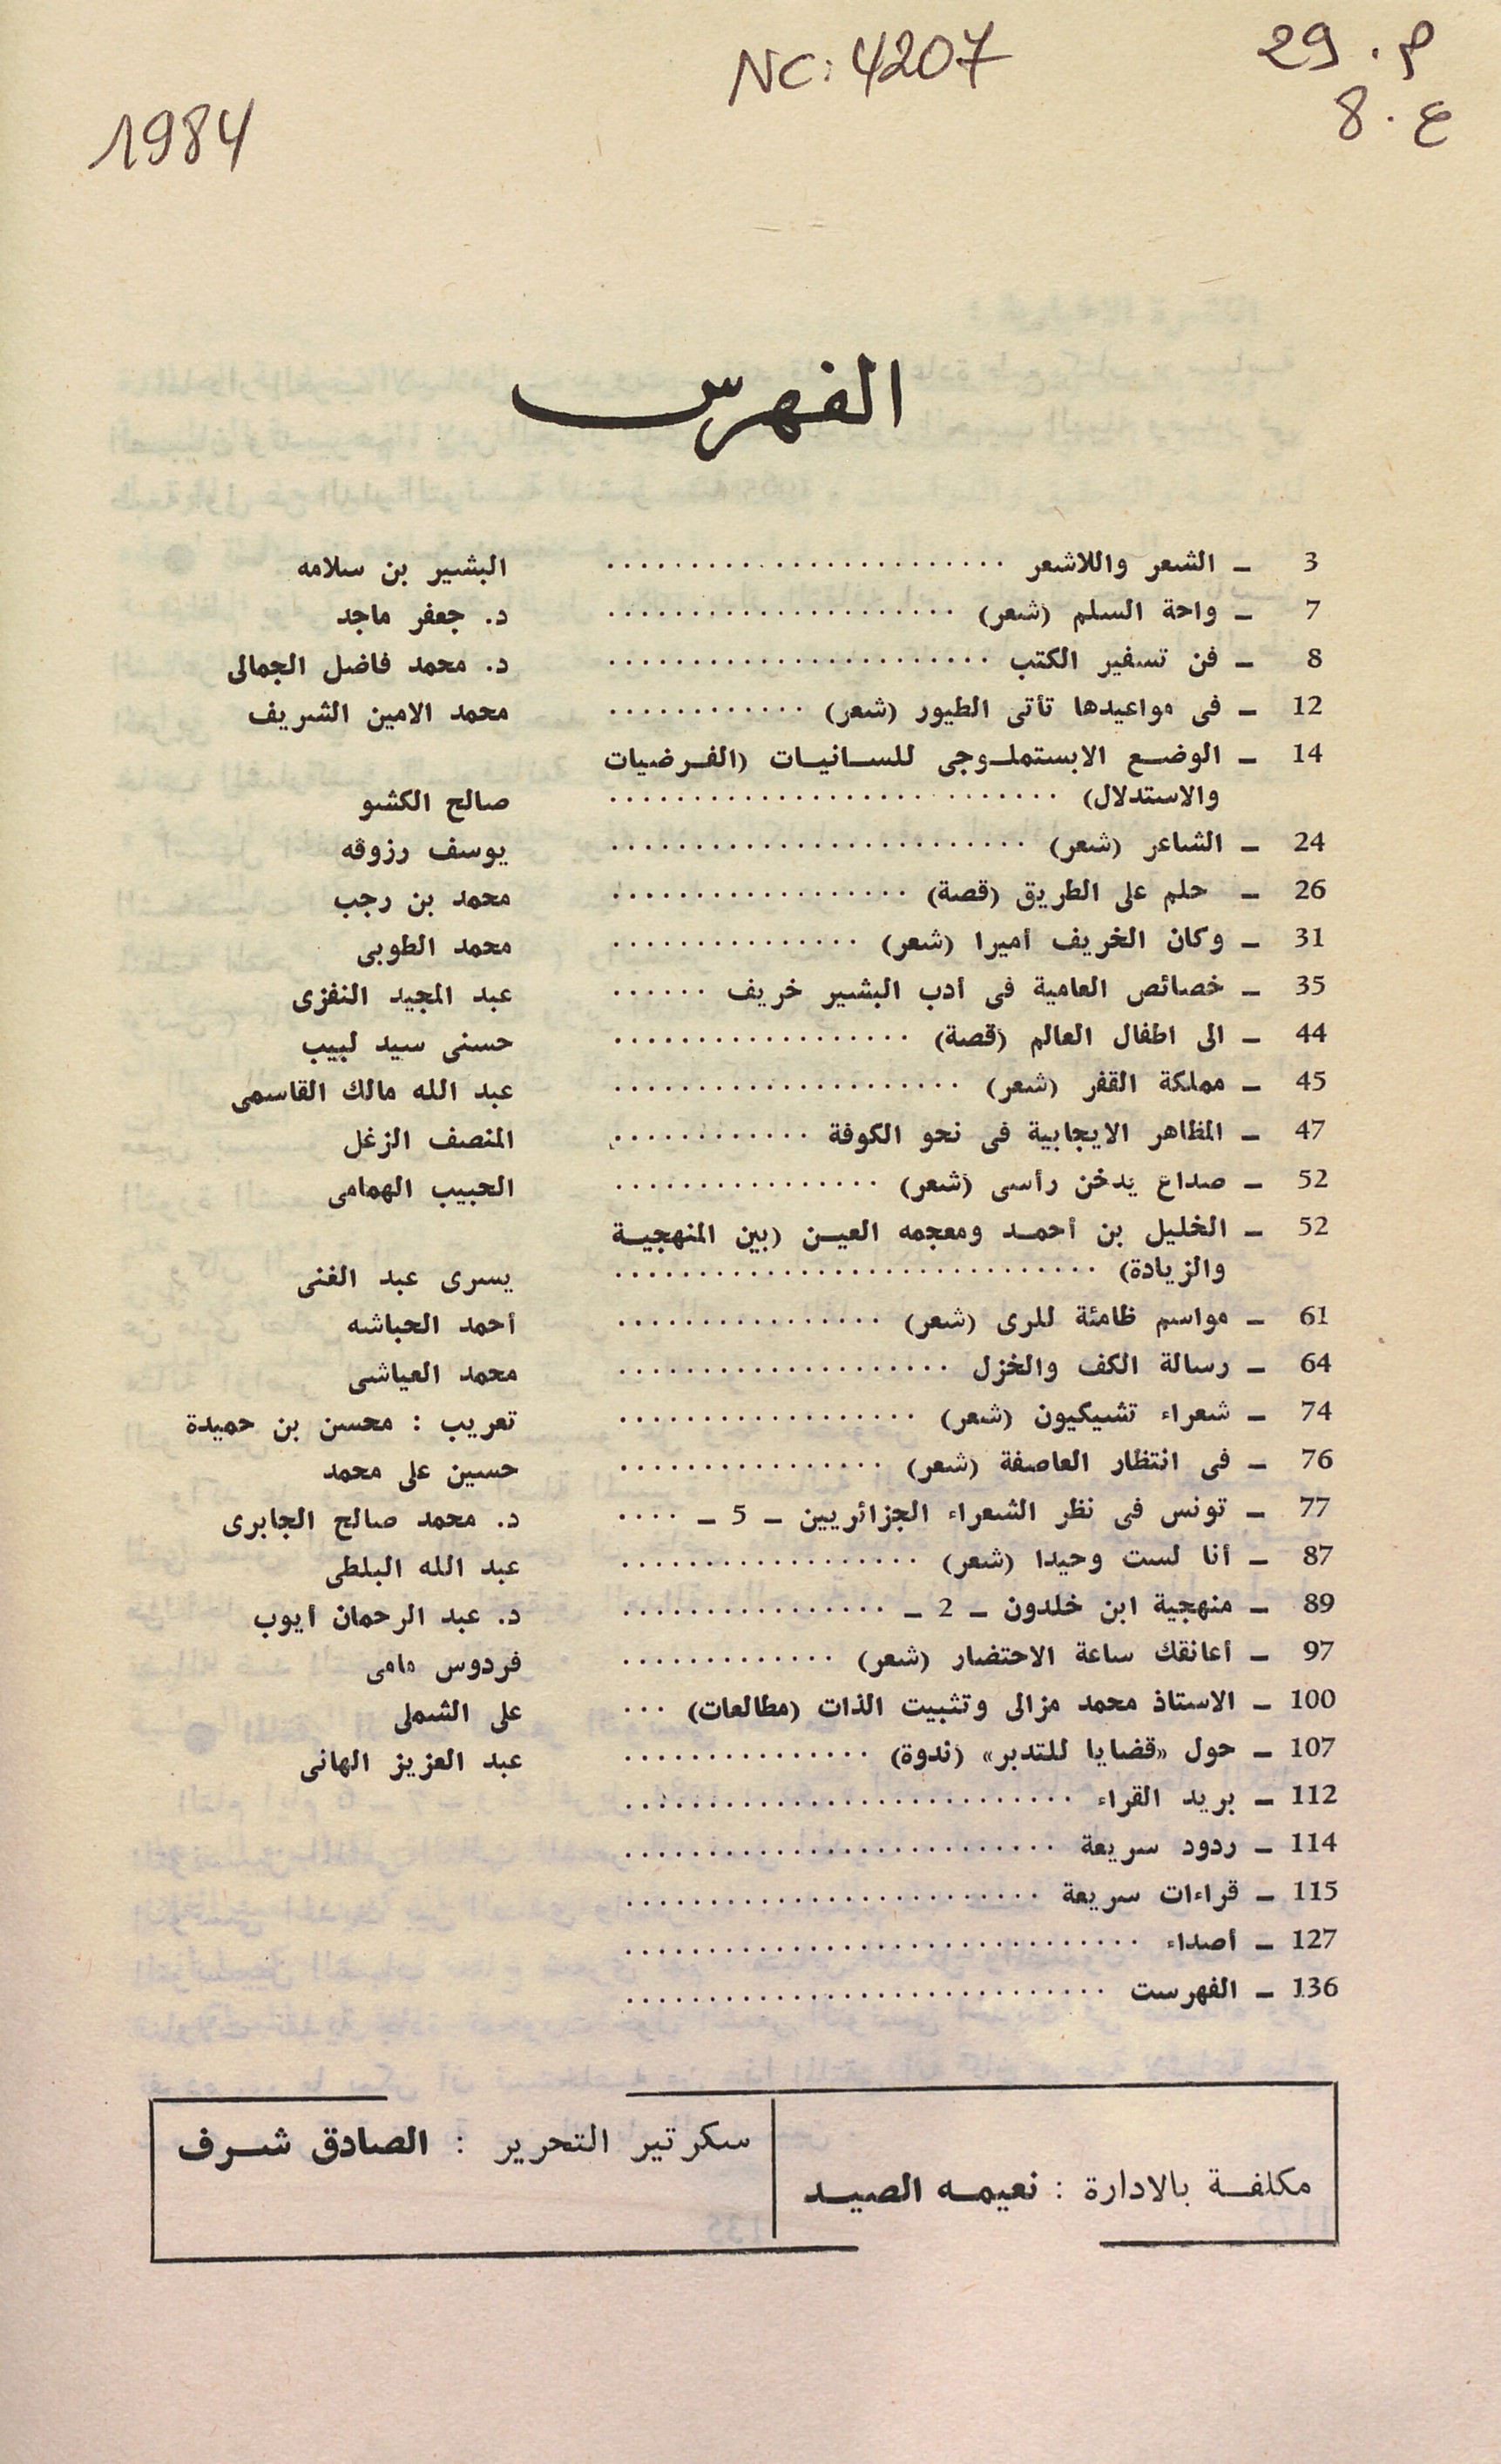 م. 29
NC: 4207
ع. 8
1984
الفهرس
3 ــ الشعر واللاشعر ........................ البشير بن سلامه
7 ــ واحة السلم (شعر) ..................... د. جعفر ماجد
8 ــ فن تسفير الكتب ....................... د. محمد فاضل الجمالى
12 ــ فى مواعيدها تأتى الطيور (شعر) ............ محمد الامين الشريف
14 ــ الوضع الابستملوجى للسانيات (الفرضيات
والاستدلال) ........................... صالح الكشو
24 ــ الشاعر (شعر) .......................... يوسف رزوقه
26 ــ حلم على الطريق (قصة) .................. محمد بن رجب
31 ــ وكان الخريف أميرا (شعر) ............... محمد الطوبى
35 ــ خصائص العامية فى أدب البشير خريف ...... عبد المجيد النفزى
44 ــ الى اطفال العالم (قصة) .................. حسنى سيد لبيب
45 ــ مملكة القفر (شعر) ..................... عبد الله مالك القاسمى
47 ــ المظاهر الايجابية فى نحو الكوفة ............ المنصف الزغل
52 ــ صداع يدخن رأسى (شعر) ................ الحبيب الهمامى
52 ــ الخليل بن أحمد ومعجمه العين (بين المنهجية
والزيادة) ............................. يسرى عبد الغنى
61 ــ مواسم ظامئة للرى (شعر) ................ أحمد الحباشه
64 ــ رسالة الكف والخزل .................... محمد العياشى
74 ــ شعراء تشيكيون (شعر) .................. تعريب : محسن بن حميدة
76 ــ فى انتظار العاصفة (شعر) ................ حسين على محمد
77 ــ تونس فى نظر الشعراء الجزائريين ــ 5 ــ .... د. محمد صالح الجابرى
87 ــ أنا لست وحيدا (شعر) .................. عبد الله البلطى
89 ــ منهجية ابن خلدون ــ 2 ــ ................ د. عبد الرحمان أيوب
97 ــ أعانقك ساعة الاحتضار (شعر) ............. فردوس مامى
100 ــ الاستاذ محمد مزالى وتثبيت الذات (مطالعات) ... على الشملى
107 ــ حول «قضايا للتدبر» (ندوة) ............... عبد العزيز الهانى
112 ــ بريد القراء ...........................
114 ــ ردود سريعة ..........................
115 ــ قراءات سريعة .........................
127 ــ أصداء ...............................
136 ــ الفهرست .............................
مكلفة بالادارة : نعيمه الصيد
سكرتير التحرير : الصادق شرف